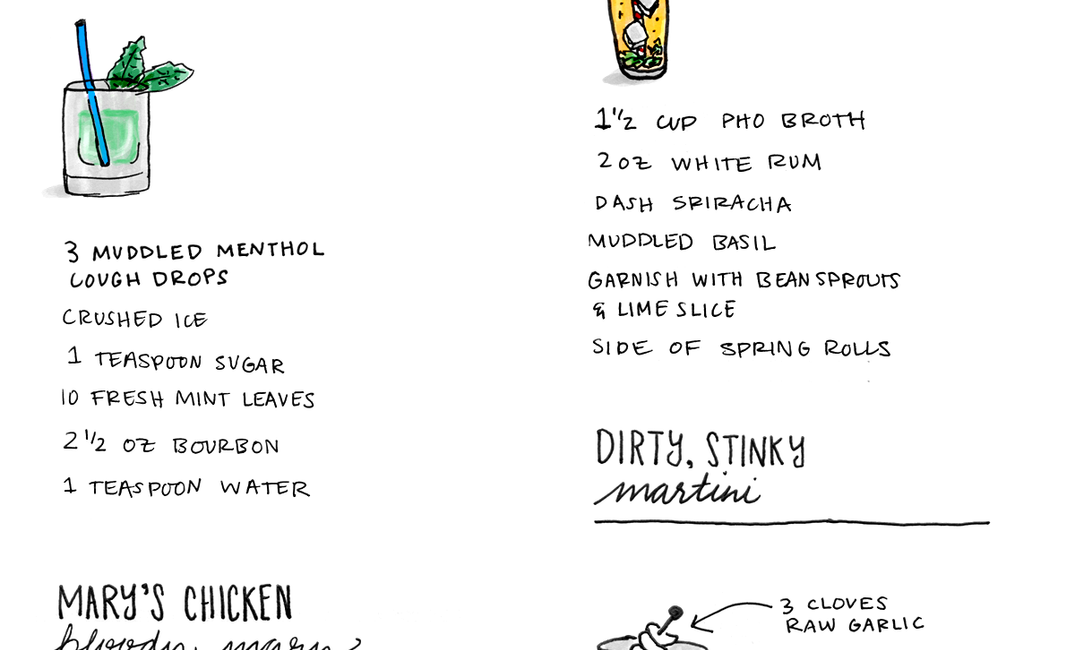 3 MUDDLED MENTHOL
COUGH DROPS
CRUSHED ICE
1 TEASPOON SUGAR
10 FRESH MINT LEAVES
2 1/2 OZ BOURBON
1 TEASPOON WATER
MARY'S CHICKEN
bloody mary
1 1/2 CUP PHO BROTH
2 OZ WHITE RUM
DASH SRIRACHA
MUDDLED BASIL
GARNISH WITH BEAN SPROUTS
& LIME SLICE
SIDE OF SPRING ROLLS
DIRTY, STINKY
martini
3 CLOVES
RAW GARLIC